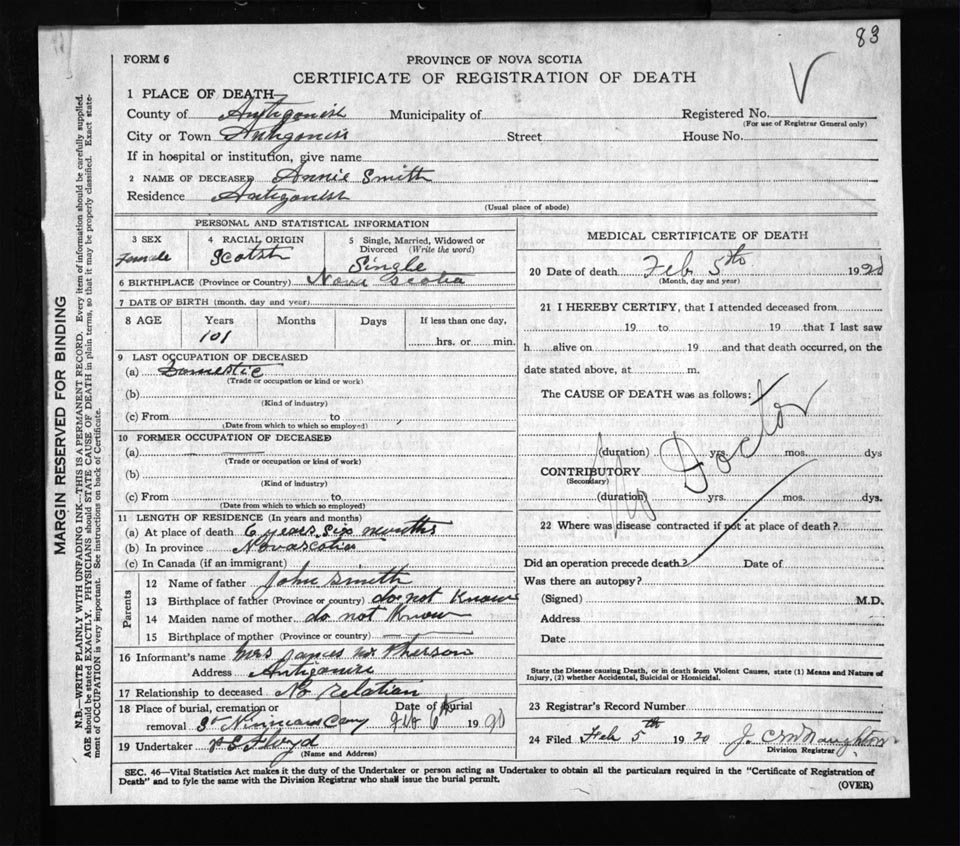 83
FORM 6
PROVINCE OF NOVA SCOTIA
CERTIFICATE OF REGISTRATION OF DEATH
1 PLACE OF DEATH
County of Antigonish Municipality of Registered No.
(For use of Registrar General only)
City or Town Antigonish Street House No.
If in hospital or institution, give name
2 NAME OF DECEASED Annie Smith
Residence Antigonish
(Usual place of abode)
PERSONAL AND STATISTICAL INFORMATION
3 SEX 4 RACIAL ORIGIN 5 Single, Married, Widowed or
Divorced (Write the word)
Female Scotsh Single
6 BIRTHPLACE (Province or Country) Nova Scotia
7 DATE OF BIRTH (month, day and year)
8 AGE Years Months Days If less than one day,
101 hrs. or min.
9 LAST OCCUPATION OF DECEASED
(a) Domestic
(Trade or occupation or kind or work)
(b)
(Kind of industry)
(c) From to
(Date from which to which so employed)
10 FORMER OCCUPATION OF DECEASED
(a)
(Trade or occupation of kind of work)
(b)
(Kind of industry)
(c) From to
(Date from which to which so employed)
11 LENGTH OF RESIDENCE (In years and months)
(a) At place of death 6 years six months
(b) In province Novascotia
(c) In Canada (if an immigrant)
Parents
12 Name of father John Smith
13 Birthplace of father (Province or country) do not Know
14 Maiden name of mother do not Know
15 Birthplace of mother (Province or country)
16 Informant's name Mrs James McPherson
Address Antigonish
17 Relationship to deceased No relation
18 Place of burial, cremation or Date of burial
removal St Ninians Cemy Feb 6 1920
19 Undertaker Floyd
(Name and Address)
MEDICAL CERTIFICATE OF DEATH
20 Date of death Feb 5th 1920
(Month, day and year)
21 I HEREBY CERTIFY, that I attended deceased from
19 to 19 that I last saw
h alive on 19 and that death occurred, on the
date stated above, at m.
The CAUSE OF DEATH was as follows:
No Doctor
(duration) yrs. mos. dys
CONTRIBUTORY
(Secondary)
(duration) yrs. mos. dys.
22 Where was disease contracted if not at place of death?
Did an operation precede death? Date of
Was there an autopsy?
(Signed) M.D.
Address
Date
State the Disease causing Death, or in death from Violent Causes, state (1) Means and Nature of
Injury, (2) whether Accidental, Suicidal or Homicidal.
23 Registrar's Record Number
24 Filed Feb 5th 1920 J. C McNaughton
Division Registrar
SEC. 46—Vital Statistics Act makes it the duty of the Undertaker or person acting as Undertaker to obtain all the particulars required in the "Certificate of Registration of
Death" and to fyle the same with the Division Registrar who shall issue the burial permit.
(OVER)
MARGIN RESERVED FOR BINDING
N.B.—WRITE PLAINLY WITH UNFADING INK—THIS IS A PERMANENT RECORD. Every item of information should be carefully supplied.
AGE should be stated EXACTLY. PHYSICIANS should STATE CAUSE OF DEATH in plain terms, so that it may be properly classified. Exact state-
ment of OCCUPATION is very important. See instructions on back of Certificate.